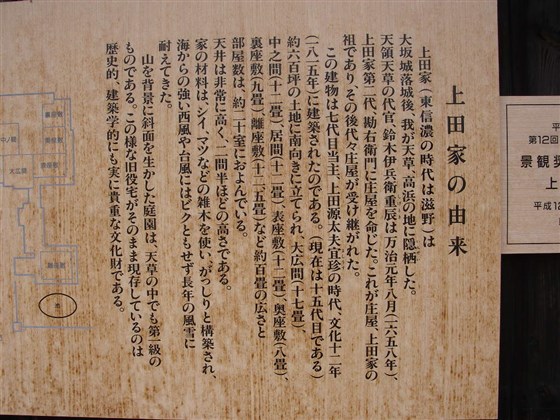 上田家の由来
上田家(東信濃の時代は滋野)は
大坂城落城後、我が天草、高浜の地に隠栖した。
天領天草の代官、鈴木伊兵衛重辰は万治元年八月(一六五八年)、
上田家第二代、勘右衛門に庄屋を命じた。これが庄屋、上田家の
祖であり、その後代々庄屋が受け継がれた。
この建物は七代目当主、上田源太夫宜珍の時代、文化十二年
(一八一五年)に建築されたのである。(現在は十五代目である)
約六百坪の土地に南向きに立てられ、大広間(十七畳)、
中之間(十二畳)居間(十二畳)、表座敷(十二畳)、奥座敷(八畳)、
裏座敷(九畳)離座敷(十二、五畳)など約百畳の広さと
部屋数は、約二十室におよんでいる。
天井は非常に高く、二間半ほどの高さである。
家の材料は、シイ、マツなどの雑木を使い、がっしりと構築され、
海からの強い西風や台風にはビクともせず長年の風雪に
耐えてきた。
山を背景に斜面を生かした庭園は、天草の中でも第一級の
ものである。この様な旧役宅がそのまま現存しているのは
歴史的、建築学的にも実に貴重な文化財である。
平
第12回
景観奨
上
平成12